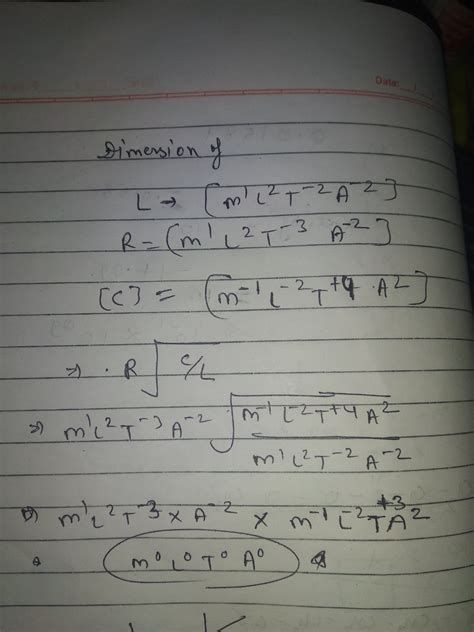 Date:
Dimension of
L → [m¹L²T⁻²A⁻²]
R = (m¹ L² T⁻³ A⁻²]
[C] = [m⁻¹L⁻²T⁺⁴ A²]
⇒ R√C/L
⇒ m¹L²T⁻³A⁻² √m⁻¹L⁻²T⁺⁴A²
m¹L²T⁻²A⁻²
⇒ m¹L²T⁻³ × A⁻² × m⁻¹L⁻²T⁺³A²
m⁰L⁰T⁰A⁰